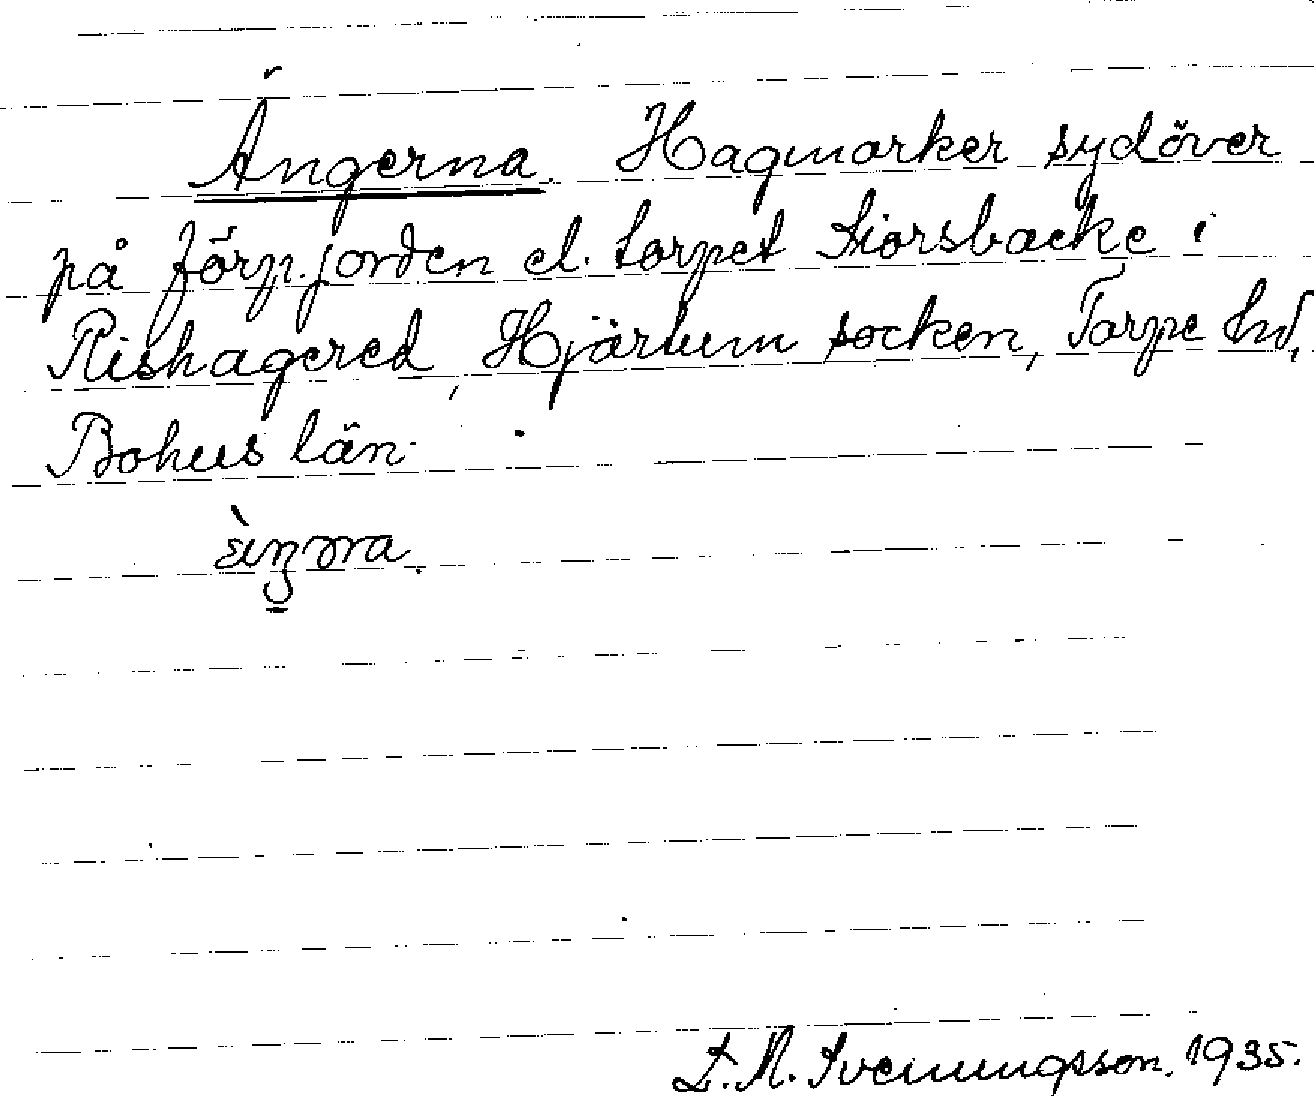 Ängerna. Hagmarker sydöver
på förp. jorden el. torpet Tiorsbacke i
Rishagered, Hjärtum socken, Torpe hd,
Bohus län.
Svenungsson. 1935.